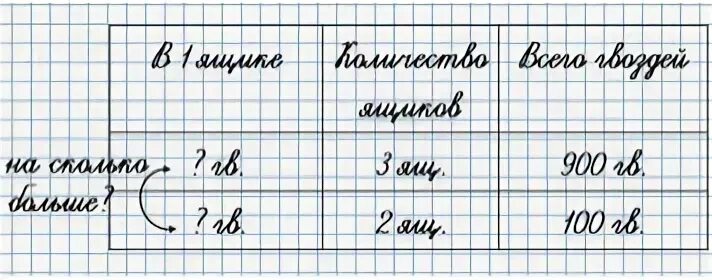 В 1 ящике Количество ящиков Всего гвоздей
на сколько больше? ? гв. 3 ящ. 900 гв.
? гв. 2 ящ. 100 гв.